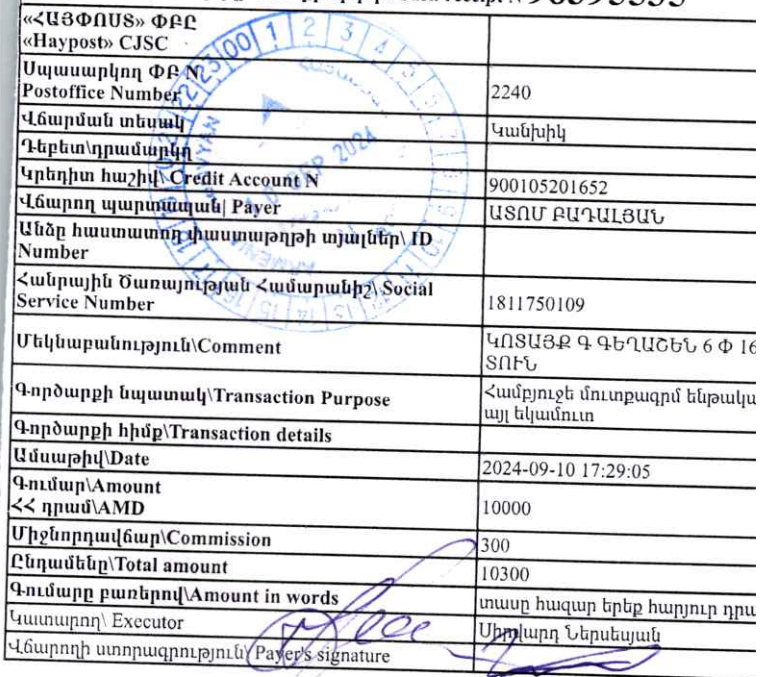 «ՀԱՅՓՈՍՏ» ՓԲԸ
«Haypost» CJSC
Սպասարկող ՓԲ N
Postoffice Number
2240
Վճարման տեսակ
Կանխիկ
Դեբետ\դրամարկղ
Կրեդիտ հաշիվ\ Credit Account N
900105201652
Վճարող պարտապան| Payer
ԱՏՈՄ ԲԱԴԱԼՅԱՆ
Անձը հաստատող փաստաթղթի տյալներ\ ID
Number
Հանրային Ծառայության Համարանիշ\ Social
Service Number
1811750109
Մեկնաբանություն\Comment
ԿՈՏԱՅՔ Գ ԳԵՂԱՇԵՆ 6 Փ 16
ՏՈՒՆ
Գործարքի նպատակ\Transaction Purpose
Համբյուջե մուտքագրմ ենթակա
այլ եկամուտ
Գործարքի հիմք\Transaction details
Ամսաթիվ\Date
2024-09-10 17:29:05
Գումար\Amount
ՀՀ դրամ\AMD
10000
Միջնորդավճար\Commission
300
Ընդամենը\Total amount
10300
Գումարը բառերով\Amount in words
տասը հազար երեք հարյուր դրա
Կատարող\ Executor
Սիրվարդ Ներսեսյան
Վճարողի ստորագրություն\ Payer's signature